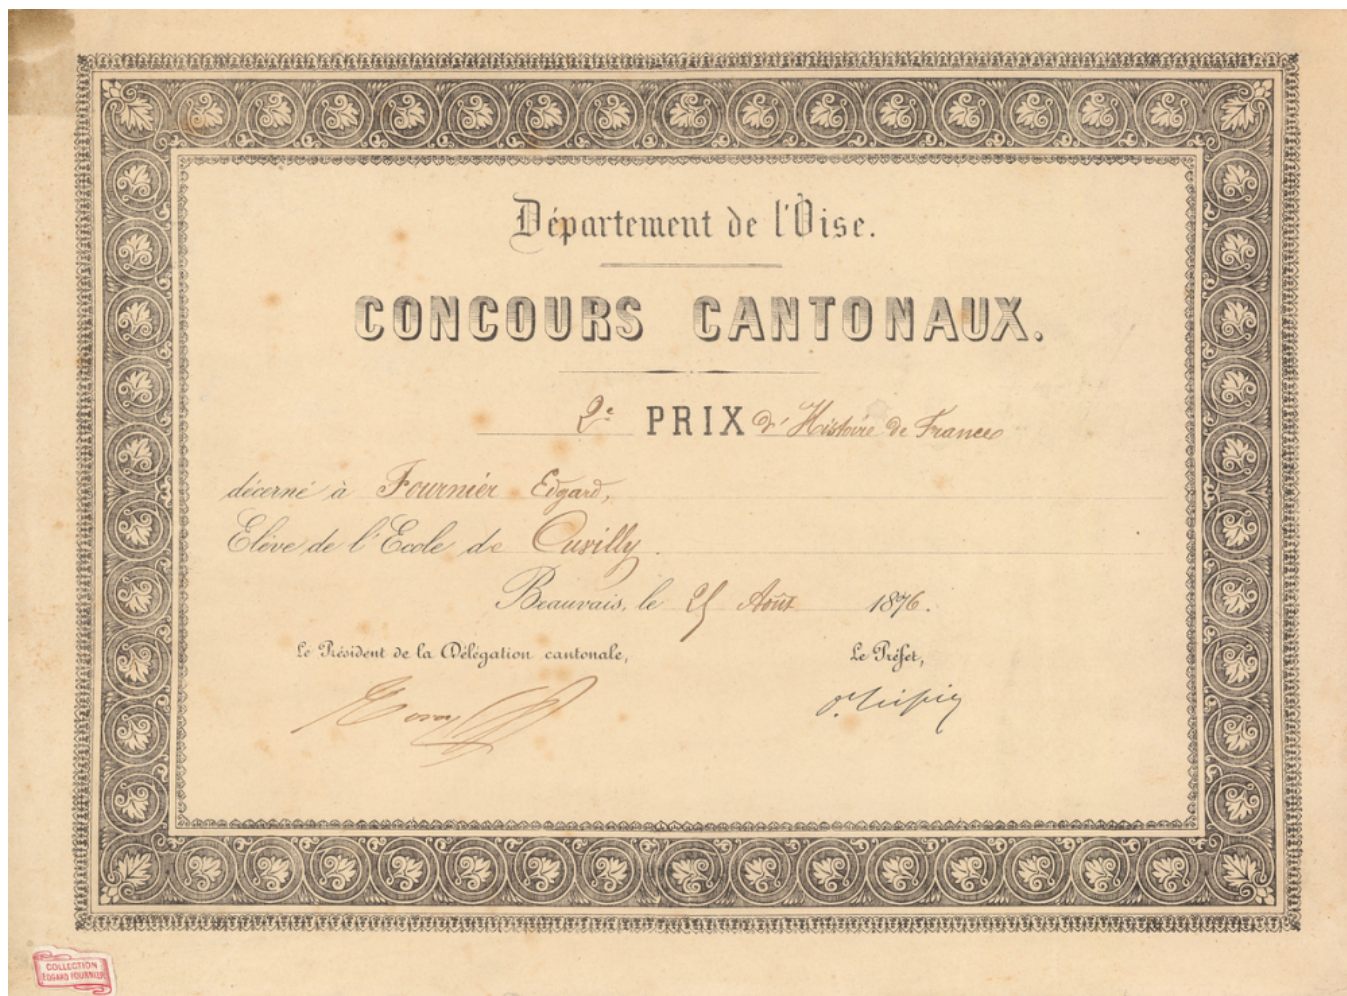 Département de l'Oise.
CONCOURS CANTONAUX.
2e PRIX d'Histoire de France
décerné à Fournier Edgard,
Elève de l'Ecole de Cuvilly.
Beauvais, le 25 Août 1876.
Le Président de la Délégation cantonale, Le Préfet,
COLLECTION
EDGARD FOURNIER